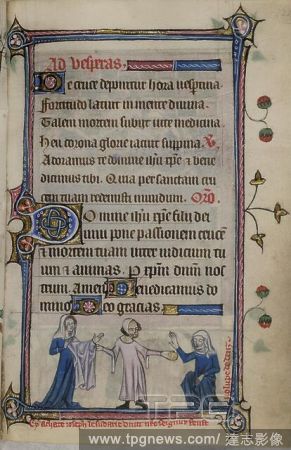 Ad vesperas
De cruce deponitur hora vespertina
Fortitudo latuit in mente divina
Talem mortem subiit vite medicina
Heu corona glorie iacuit suppina
Adoramus te domine ihu xpe et bene
dicimus tibi. Quia per sanctam cru
cem tuam redemisti mundum. Oro.
Domine ihu xpe filii dei
vivi pone passionem cruce
et mortem tuam inter iudicium tu
um et animas. P xpm dnm nos
trum. Amen. Benedicamus do
mino. Deo gracias.
TPG
www.tpgnews.com / 達志影像